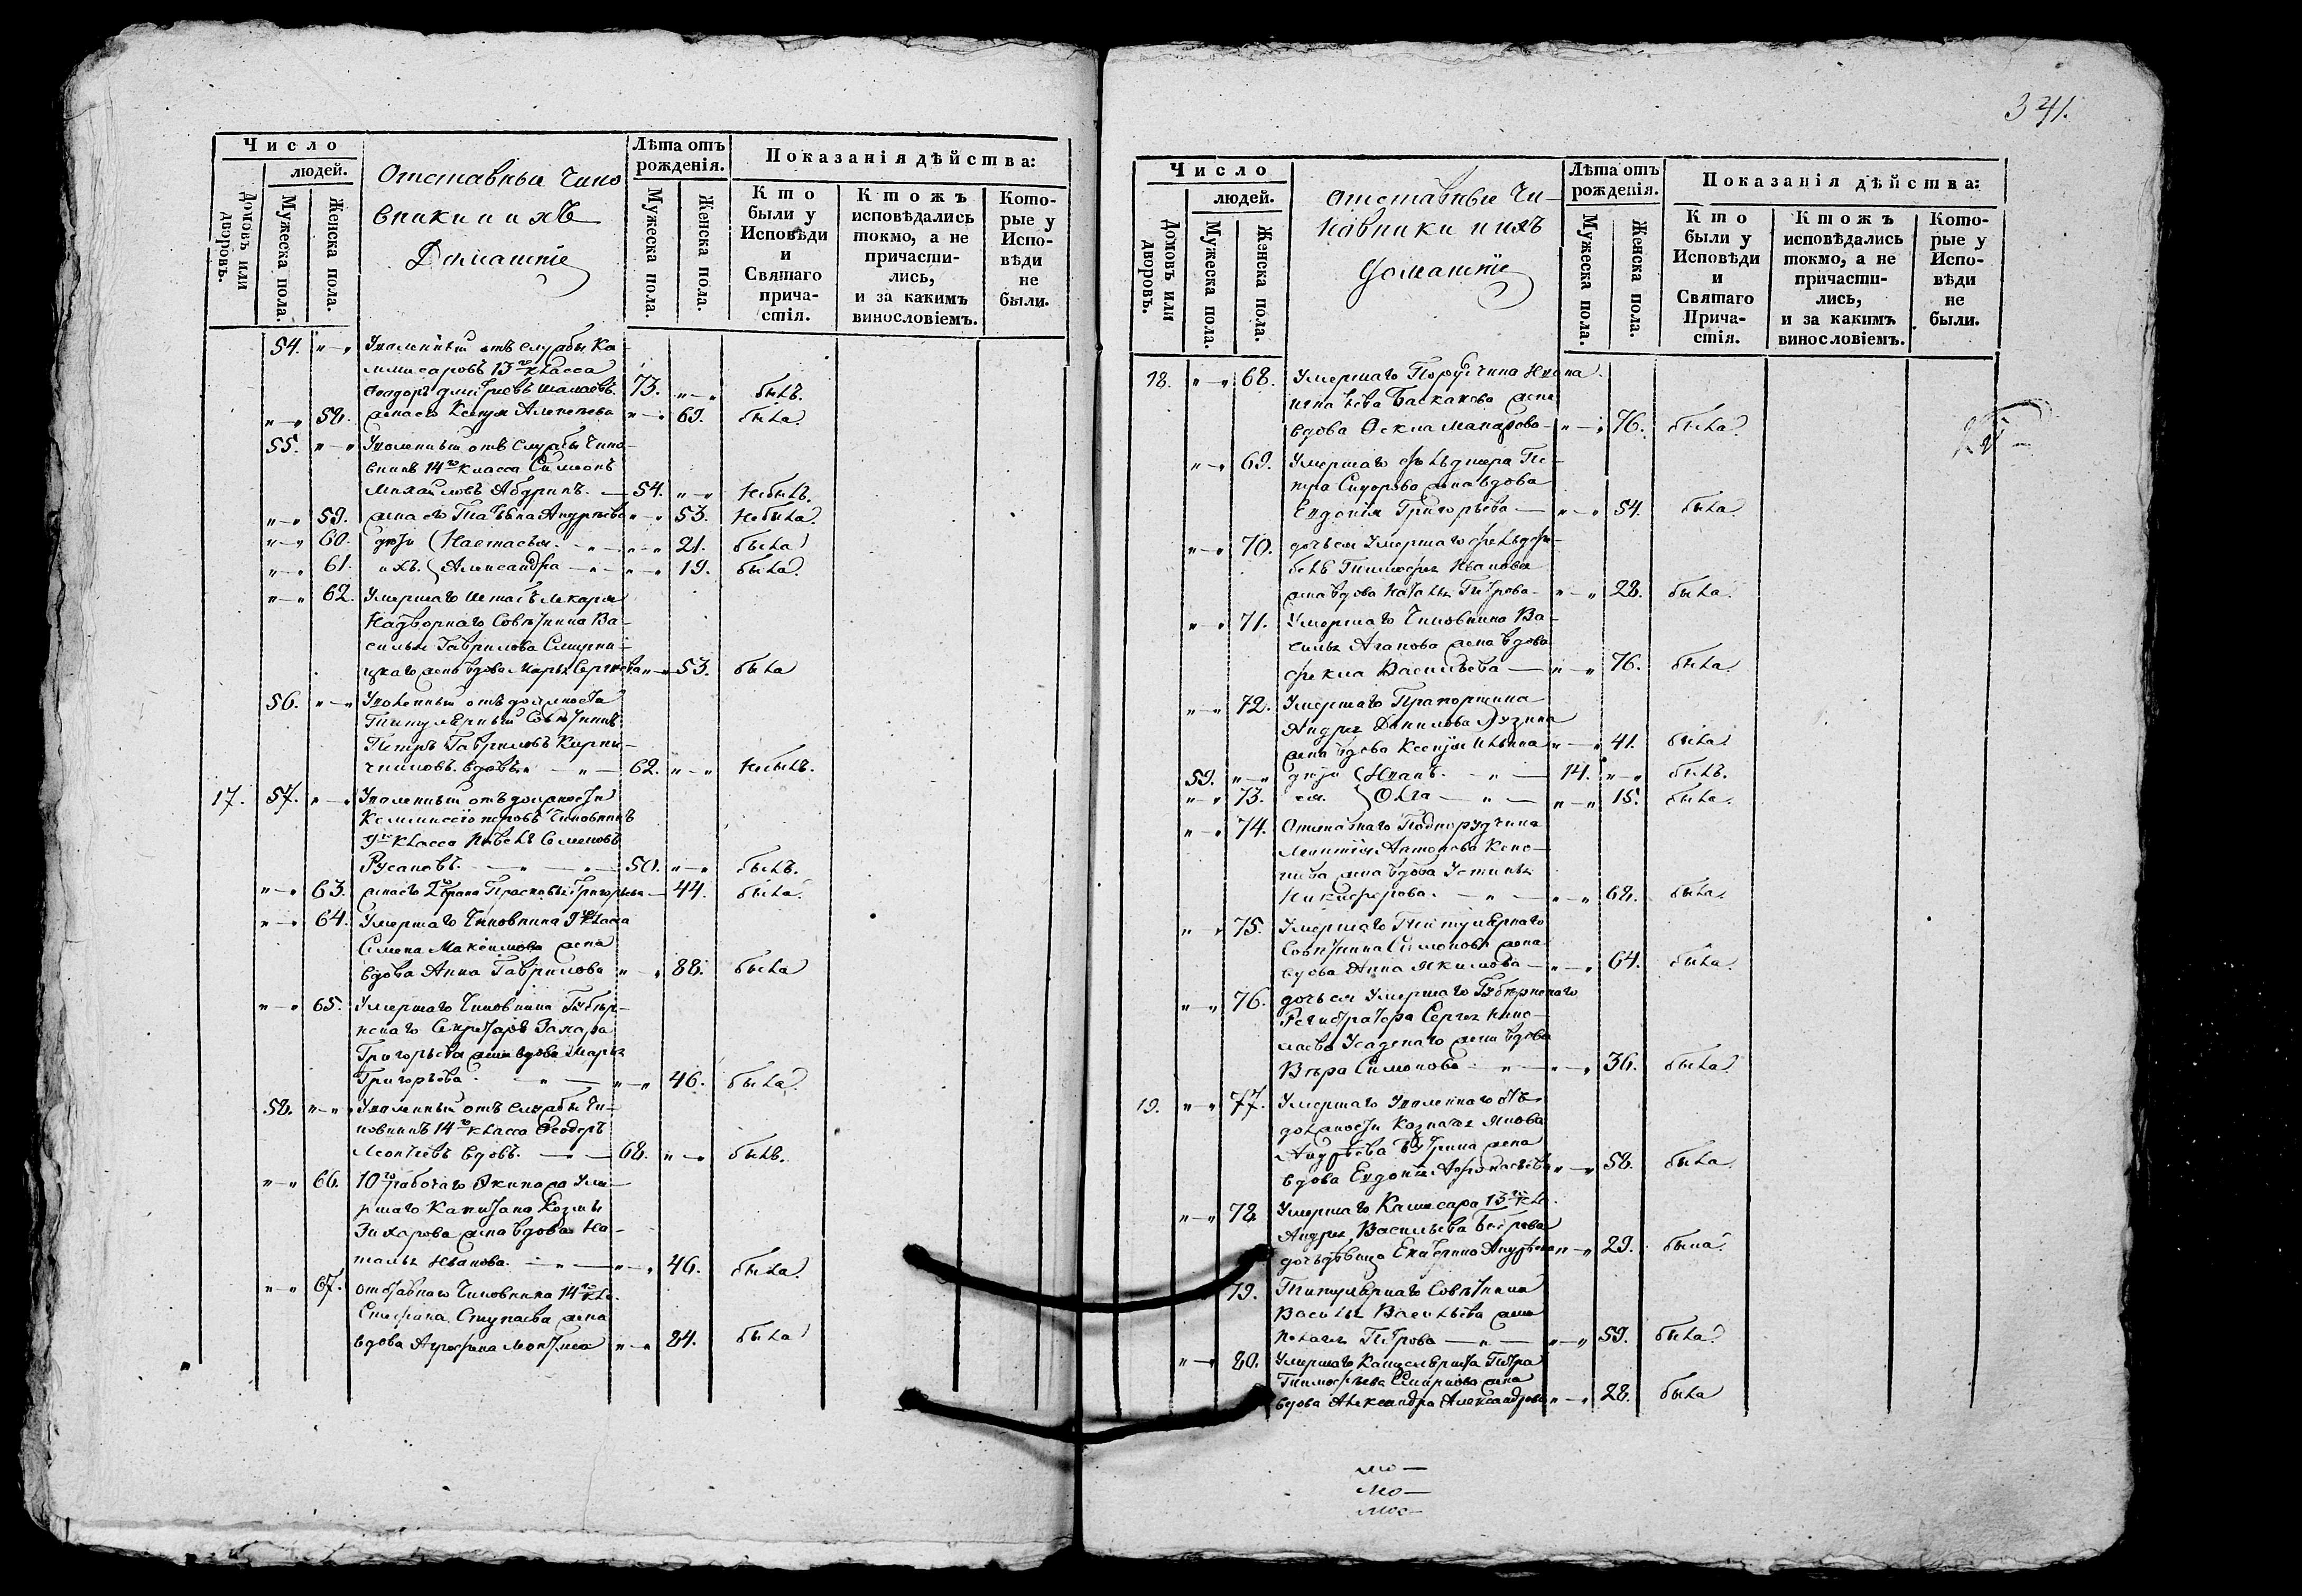 Число
людей.
Домовъ или дворовъ.
Мужеска пола.
Женска пола.
Отставныя Чино
вники и ихъ
Домашніе
Лѣта отъ
рожденія.
Мужеска пола.
Женска пола.
Показанія дѣйства:
Кто
были у
Исповѣди
и
Святаго
прича-
стія.
Ктожъ
исповѣдались
токмо, а не
причасти-
лись,
и за какимъ
винословіемъ.
Кото-
рые у
Испо-
вѣди
не
были.
54. "—" Уволенный отъ службы Ко-
ммисаровъ 13го класса
Феодоръ Дмитріевъ 73. "—" былъ.
"—" 58. жена его Ксенія Алексѣева "—" 69. была.
55. "—" Уволенный отъ Службы Чино-
вникъ 14го класса Симіонъ
Михайловъ — 54. "—" Небылъ.
"—" 59. жена его Татьяна Андреева "—" 53. Небыла.
"—" 60. дѣти Настасья. "—" 21. была
"—" 61. ихъ. Александра — "—" 19. была.
"—" 62. Умершаго Штабъ Лекаря
Надворнаго Совѣтника Ва-
силья Гаврилова
жена вдова Марья Сергѣева "—" 53. была
56. "—" Уволенный отъ должности
Титулярный Совѣтникъ
Петръ Гавриловъ Кирпи-
чниковъ вдовъ. " — 62. "—" Небылъ.
17. 57. "—" Уволенный отъ должности
Коммиссіонеровъ Чиновникъ
9го класса Павелъ Семеновъ
Русановъ. — " — 50. "—" былъ.
"—" 63. жена его 2го брака Прасковья Григорьева — 44. была.
"—" 64. Умершаго Чиновника 9го класса
Семена Максимова жена
вдова Анна Гаврилова "—" 88. была
"—" 65. Умершаго Чиновника Губер-
нскаго Секретаря Захара
Григорьева жена вдова Марья
Григорьева. — " — "—" 46. была.
58. "—" Уволенный отъ службы Чи-
новникъ 14го класса Феодоръ
Леонтьевъ вдовъ. — 68. "—" былъ.
"—" 66. 10го рабочаго Экипажа Уме-
ршаго Капитана Козмы
Захарова жена вдова На-
талья Иванова. — " — "—" 46. была.
"—" 67. отставнаго Чиновника 14го кла.
Стефана Ступаева жена
вдова Агрофена "—" 84. была
341.
Число
людей.
Домовъ или дворовъ.
Мужеска пола.
Женска пола.
Отставные Чи-
новники и ихъ
домашніе
Лѣта отъ
рожденія.
Мужеска пола.
Женска пола.
Показанія дѣйства:
Кто
были у
Исповѣди
и
Святаго
Прича-
стія.
Ктожъ
исповѣдались
токмо, а не
причасти-
лись,
и за какимъ
винословіемъ.
Кото-
рые у
Испо-
вѣди
не
были.
18. "—" 68. Умершаго Поручика Ивана
Баскакова жена
вдова Фекла Макарова — "—" 76. была.
"—" 69. Умершаго Пе-
тра Сидорова жена вдова
Евдокія Григорьева — "—" 54. была.
"—" 70. дочь ея Умершаго фельдфе-
беля Тимофея Иванова
жена вдова Наталья Петрова — "—" 28. была.
"—" 71. Умершаго Чиновника Ва-
силья Агапова жена вдова
Фекла Васильева — "—" 76. была.
"—" 72. Умершаго Прапорщика
Андрея Данилова Лузина
жена вдова Ксенія Ильина "—" 41. была.
59. "—" дѣти Иванъ. — " — 14. "—" былъ.
"—" 73. ея. Ольга — " — "—" 15. была.
"—" 74. Отставнаго Подпорудчика
Леонтія Антонова Коно-
жена вдова Устинья
Никифорова. — " — "—" 68. была.
"—" 75. Умершаго Титулярнаго
Совѣтника Симонова жена
вдова Анна Якимова — "—" 64. была.
"—" 76. дочь ея Умершаго Губернскаго
Регистратора Сергея Нико-
лаева жена вдова
Вѣра Симонова — " — "—" 36. была.
19. "—" 77. Умершаго Уволеннаго отъ
должности Казначея Якова
Андреева жена
вдова Евдокія Афонасьева "—" 58. была.
"—" 78. Умершаго Комисара 13го кл.
Андрея Васильева
дочь дѣвица Екатерина Андреева "—" 29. была.
79. Титулярнаго Совѣтника
Василья Васильева жена
Пелагея Петрова — " — "—" 59. была.
"—" 80. Умершаго Канцеляриста Петра
Тимофѣева Смирнова жена
вдова Александра Александрова "—" 28. была